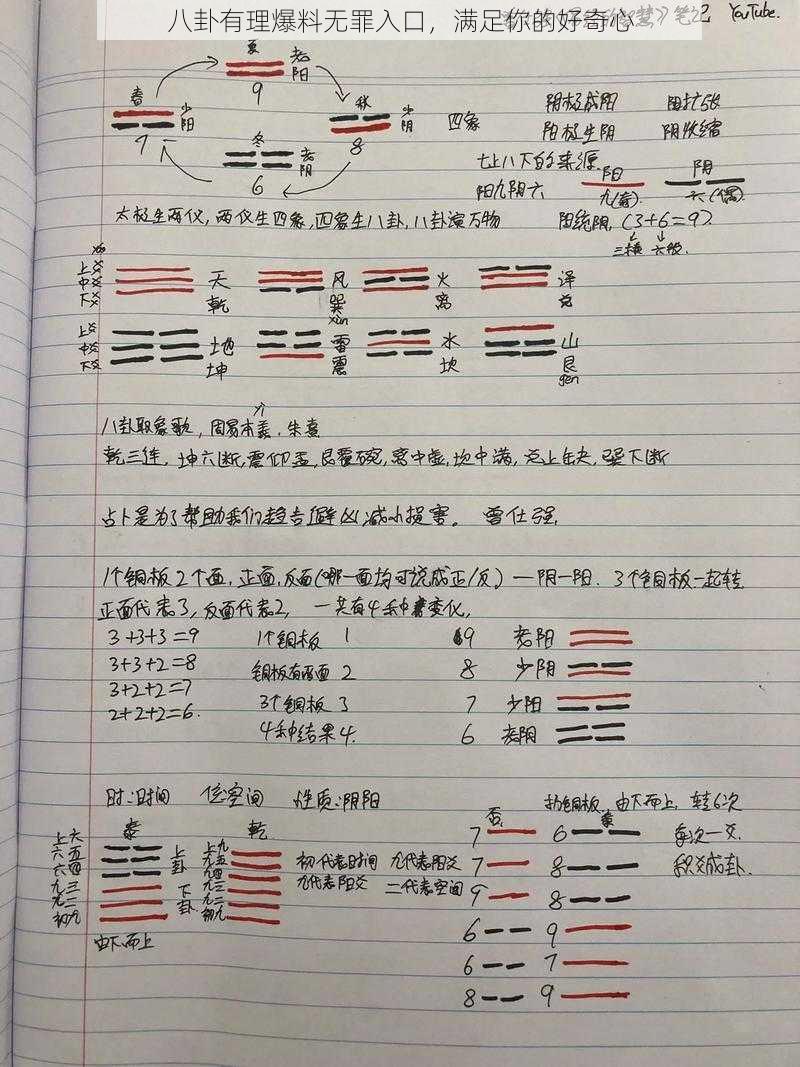 八卦有理爆料无罪入口，满足你的好奇心
YouTube.
夏 老阳 9
春 少阳 7
秋 少阴 8
冬 老阴 6
四象
阴极成阳
阳极生阴 阴收缩
七上八下的来源
阳九阴六
阳 九(奇)
阴 六(偶)
太极生两仪，两仪生四象，四象生八卦，八卦演万物
阳统阴，(3+6=9)
上爻
中爻
下爻
天 乾
风 巽 xùn
火 离
泽 兑
上爻
中爻
下爻
地 坤
雷 震
水 坎
山 艮 gen
八卦取象歌，周易本义，朱熹
乾三连，坤六断，震仰盂，艮覆碗，离中虚，坎中满，兑上缺，巽下断
占卜是为了帮助我们趋吉避凶减小损害。 曾仕强，
1个铜板2个面，正面，反面(哪一面均可说成正/反) 一阴一阳. 3个铜板一起转
正面代表3，反面代表2， 一共有4种变化，
3+3+3=9 1个铜板 1 9 老阳
3+3+2=8 铜板有两面 2 8 少阴
3+2+2=7 3个铜板 3 7 少阳
2+2+2=6. 4种结果 4. 6 老阴
时:时间 位:空间 性质:阴阳
扔铜板，由下而上，转6次
每次一爻.
积爻成卦.
泰
上六
六五
六四
九三
九二
初九
上卦
下卦
由下而上
乾
上九
九五
九四
九三
九二
初九
初代表时间 九代表阳爻
九代表阳爻 二代表空间
否
7
7
9
6
6
8
6
8
8
9
7
9